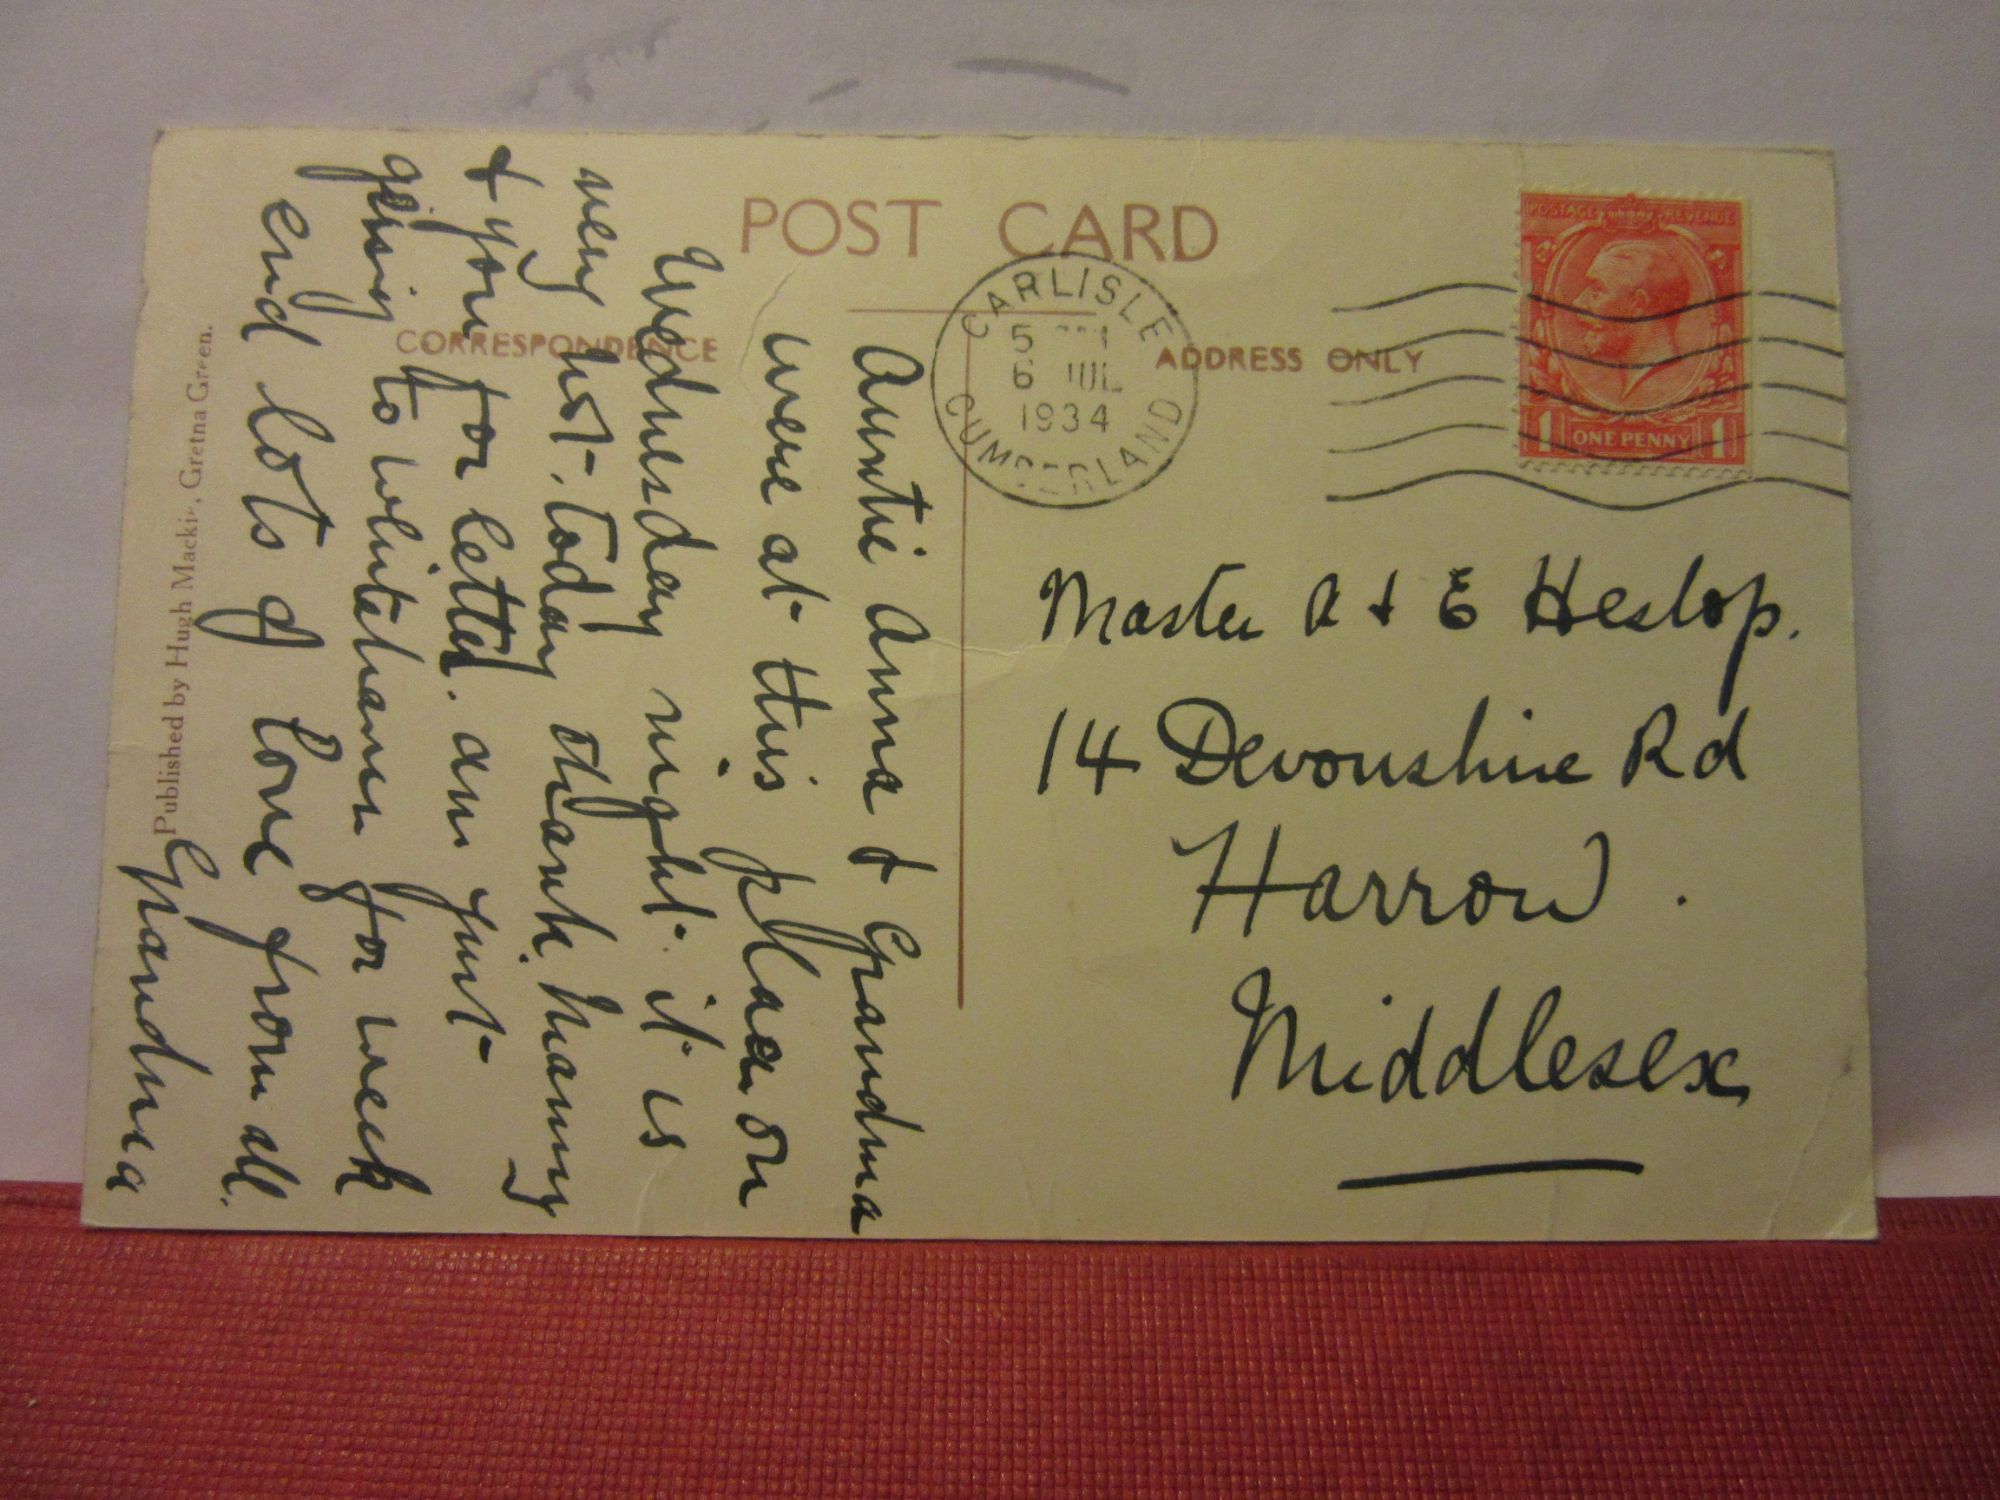 POST CARD
CORRESPONDENCE
ADDRESS ONLY
CARLISLE
5
6 JUL
1934
CUMBERLAND
POSTAGE REVENUE
1 ONE PENNY 1
Auntie Anna & Grandma
were at this place on
Wednesday night. it is
very hot. today thank Mamy
& you for letter. am just
going to whitehaven for week
end lots of love from all.
Grandma
Published by Hugh Mackie, Gretna Green.
Master R & E Heslop.
14 Devonshire Rd
Harrow.
Middlesex